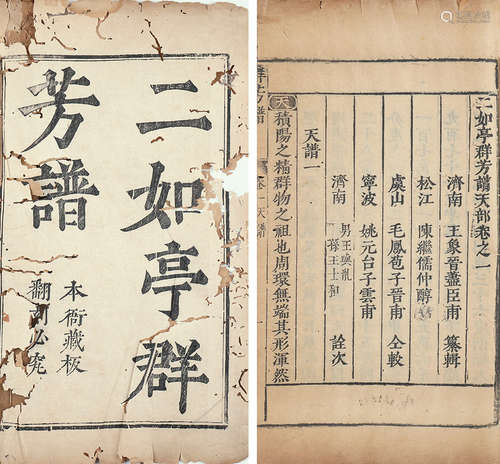 二如亭群
芳譜
本衙藏板
翻刻必究
二如亭群芳譜天部卷之一
濟南 王象晉藎臣甫 纂輯
松江 陳繼儒仲醇甫
虞山 毛鳳苞子晉甫 仝較
寧波 姚元台子雲甫
濟南 男王與胤
孫王士和 詮次
天譜一
天 積陽之精群物之祖也周環無端其形渾然
群芳譜
卷一天譜